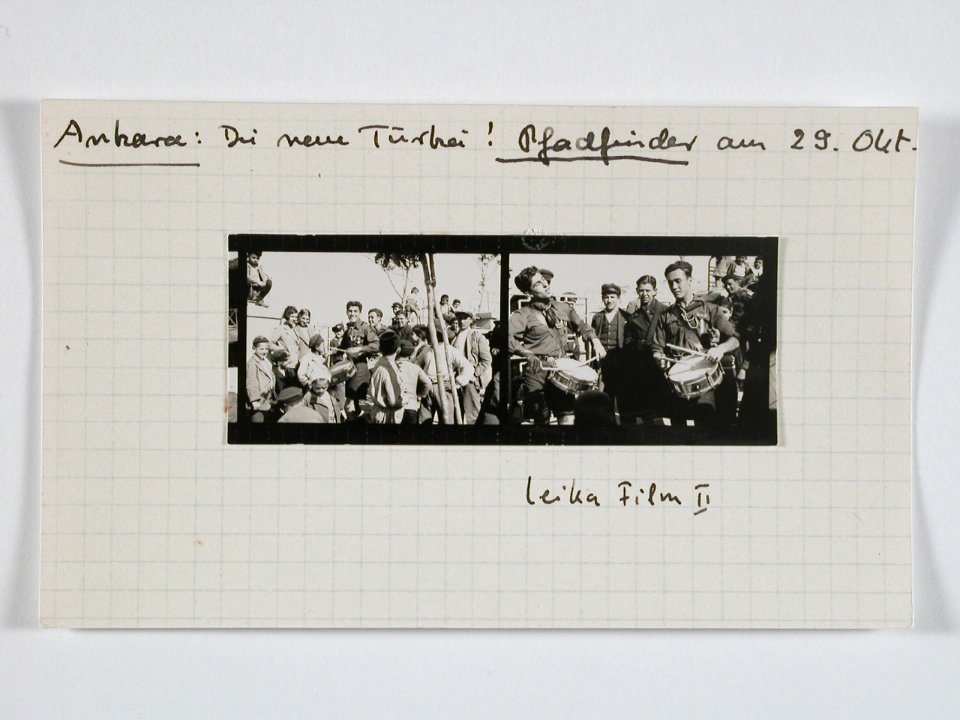 Ankara: Die neue Türkei! Pfadfinder am 29. Okt.
Leika Film II